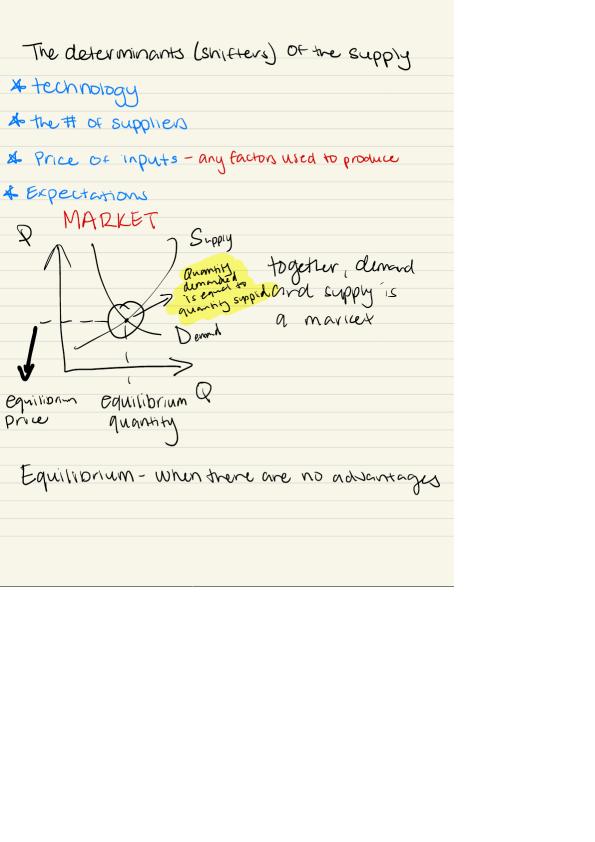 The determinants (shifters) of the supply
* technology
* the # of suppliers
* Price of inputs - any factors used to produce
* Expectations
MARKET
P
Supply
Quantity
demanded
is equal to
quantity supplied
together, demand
and supply is
a market
Demand
equilibrium
price
equilibrium
quantity
Q
Equilibrium - when there are no advantages